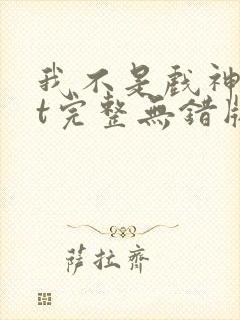 我不是戲神
t完整無錯版
薩拉齊